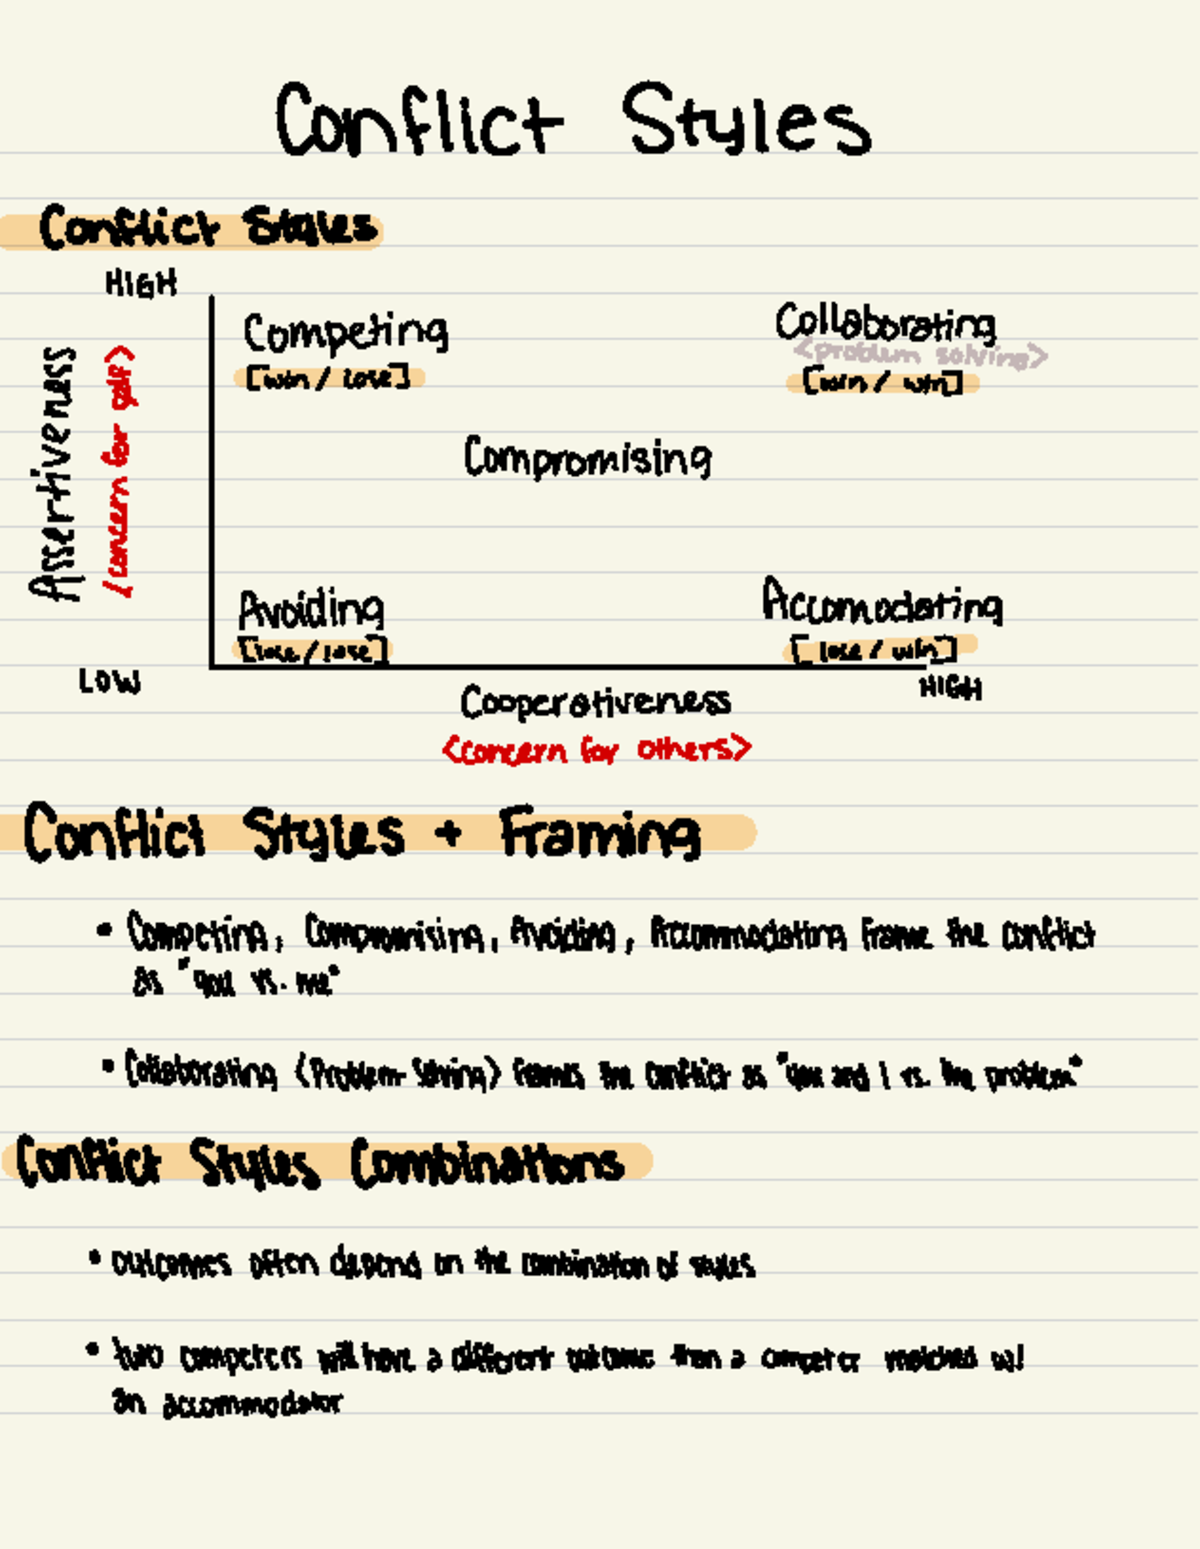 Conflict Styles
Conflict Styles
HIGH
Competing
[win / lose]
Collaborating
<problem solving>
[win / win]
Assertiveness
<concern for self>
Compromising
Avoiding
[lose / lose]
Accomodating
[lose / win]
LOW
HIGH
Cooperativeness
<concern for others>
Conflict Styles + Framing
• Competing, Compromising, Avoiding, Accommodating frame the conflict
as "you vs. me"
• Collaborating (Problem-Solving) frames the conflict as "you and I vs. the problem"
Conflict Styles Combinations
• outcomes often depend on the combination of styles
• two competers will have a different outcome than a competer matched w/
an accommodator